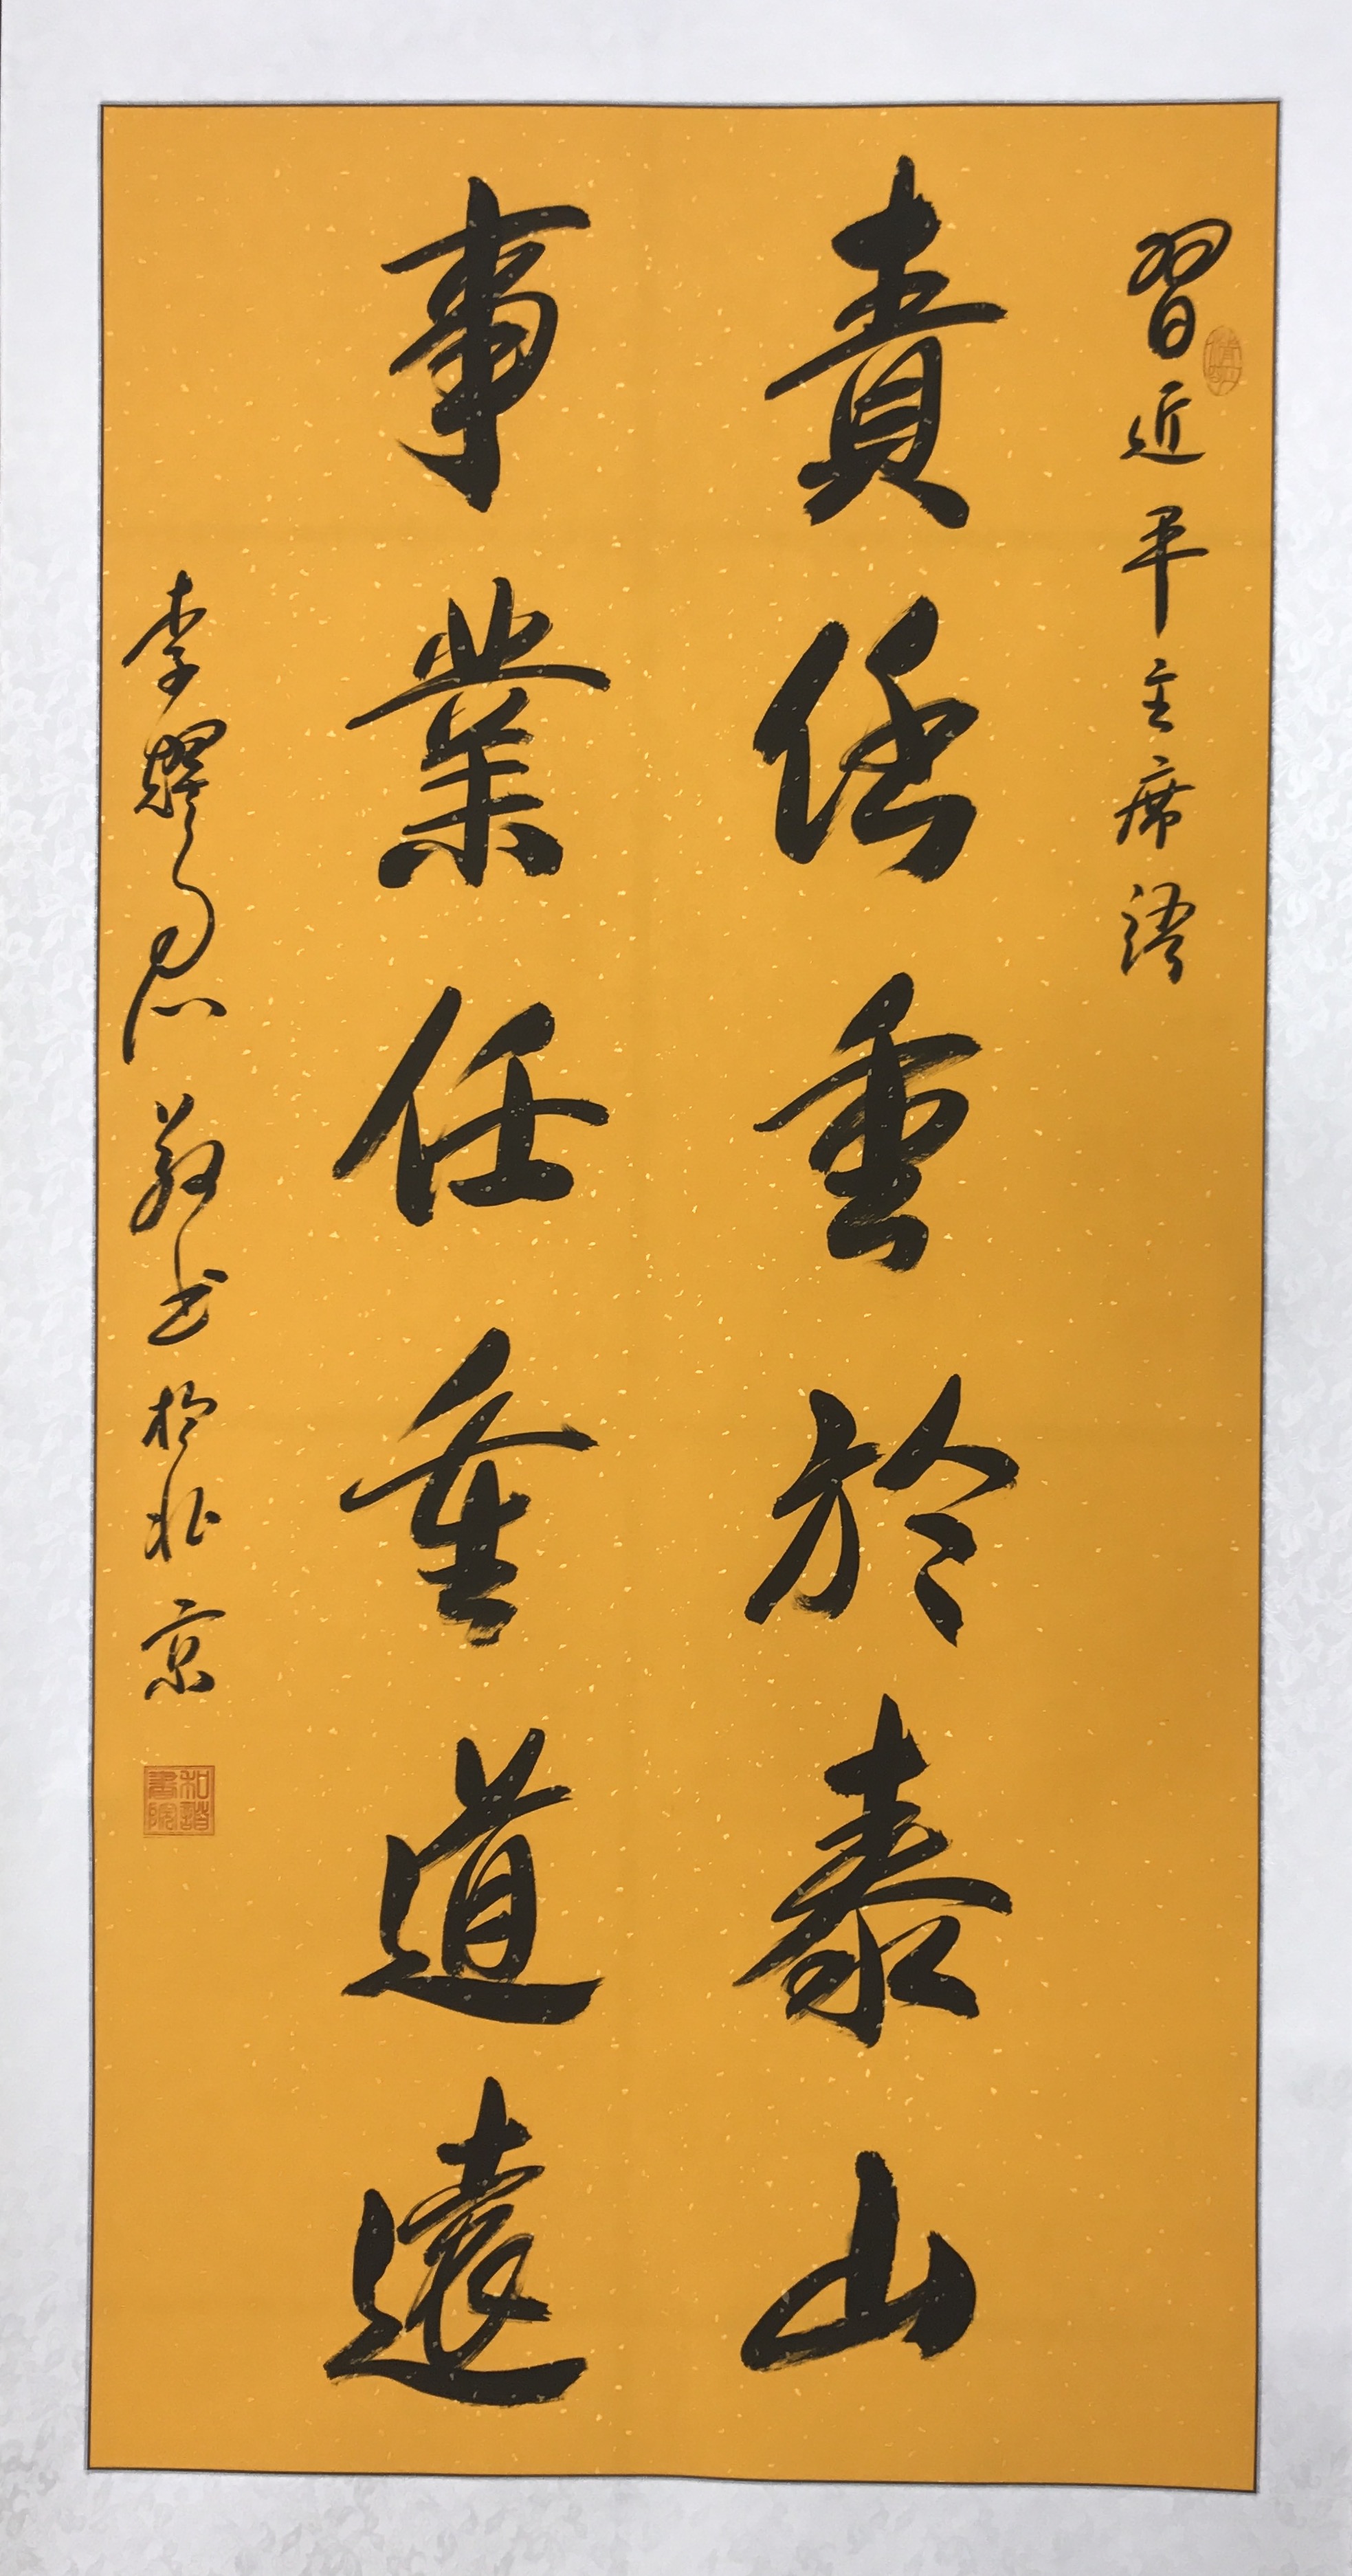 習近平主席語
責任重於泰山
事業任重道遠
李耀君敬书於北京
和諧書院